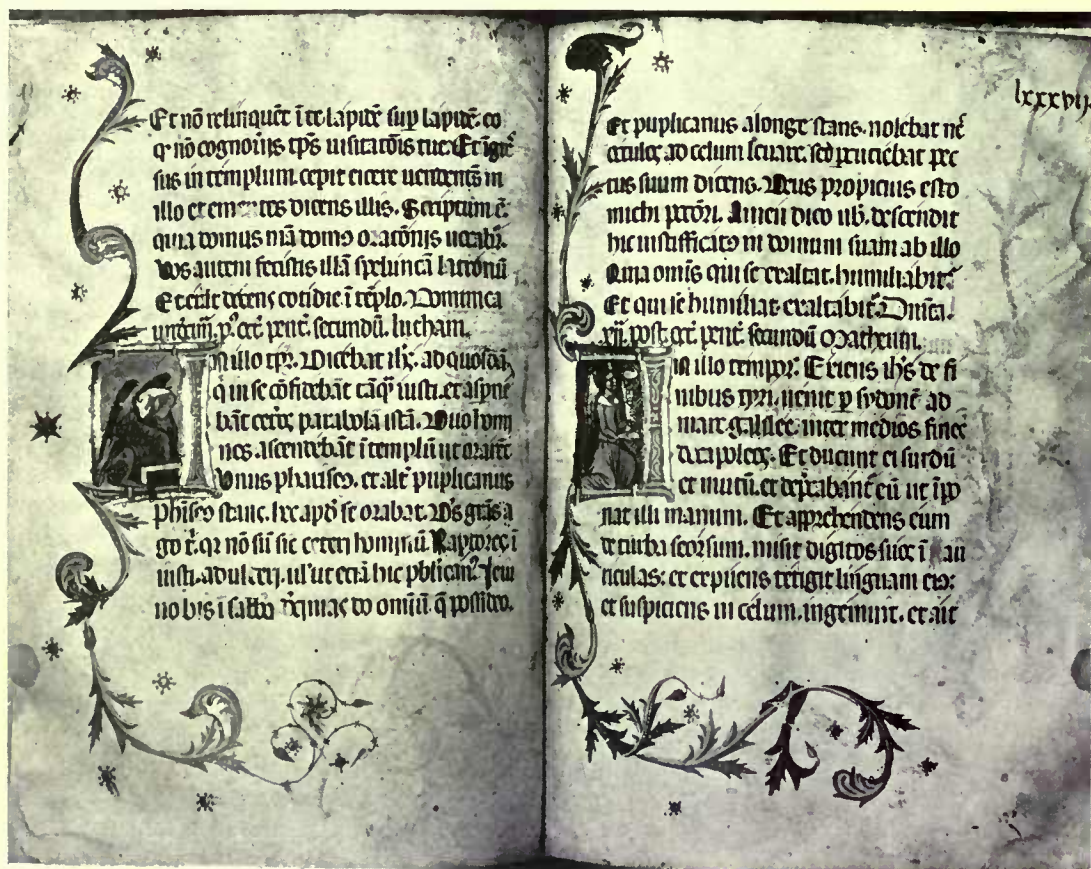 Et nō relinquēt ī te lapidē sup lapidē. eo
q nō cognouis tp̄s uisitatōis tue. Et īg̅
sus in templum. cepit eicere uendentes in
illo et ementes dicens illis. Scriptum ē.
quia domus mā domꝰ oratōnis uocabit.
Vos autem fecistis illā speluncā latronū
Et erat docens cotidie ī tēplo. Dominica
undecim. p̄ oct pent. secundū. lucham.
In illo tpr. Dicebat ihs. ad quosdā,
q in se cōfidebāt tāq iusti. et aspne
bāt ceteꝰ parabolā istā. Duo hom
nes. ascendebāt ī templū ut orarēt
Vnus phariseꝰ. et alt puplicanus
Phiseꝰ stans. hec apd se orabat. Ds grās a
go t. qr nō sū sic ceteri hominū Raptores ī
iusti. adulteri. ul ut eciā hic pblicanꝰ. Ieiu
no bis ī sabbo decimas do omniū q possideo.
lxxxvii.
Et puplicanus alonge stans. nolebat nec
oculos ad celum leuare. sed percuciebat pec
tus suum dicens. Deus propicius esto
michi pctōri. Amen dico uob. descendit
hic iustifficatꝰ in domum suam ab illo
Quia omīs qui se exaltat. humiliabit
Et qui se humiliat. exaltabit. Dnica.
xij. post oct pent. secundū Matheum.
In illo tempor. Exiens ihs de fi
nibus tyri. uenit p sydonē ad
mare galilee. inter medios fines
decapoleos. Et ducunt ei surdū
et mutū. et depcabant eū ut īpo
nat illi manum. Et apprehendens eum
de turba seorsum. misit digitos suos ī au
riculas: et expuens tetigit linguam eiꝰ:
et suspiciens in celum. ingemuit. et ait